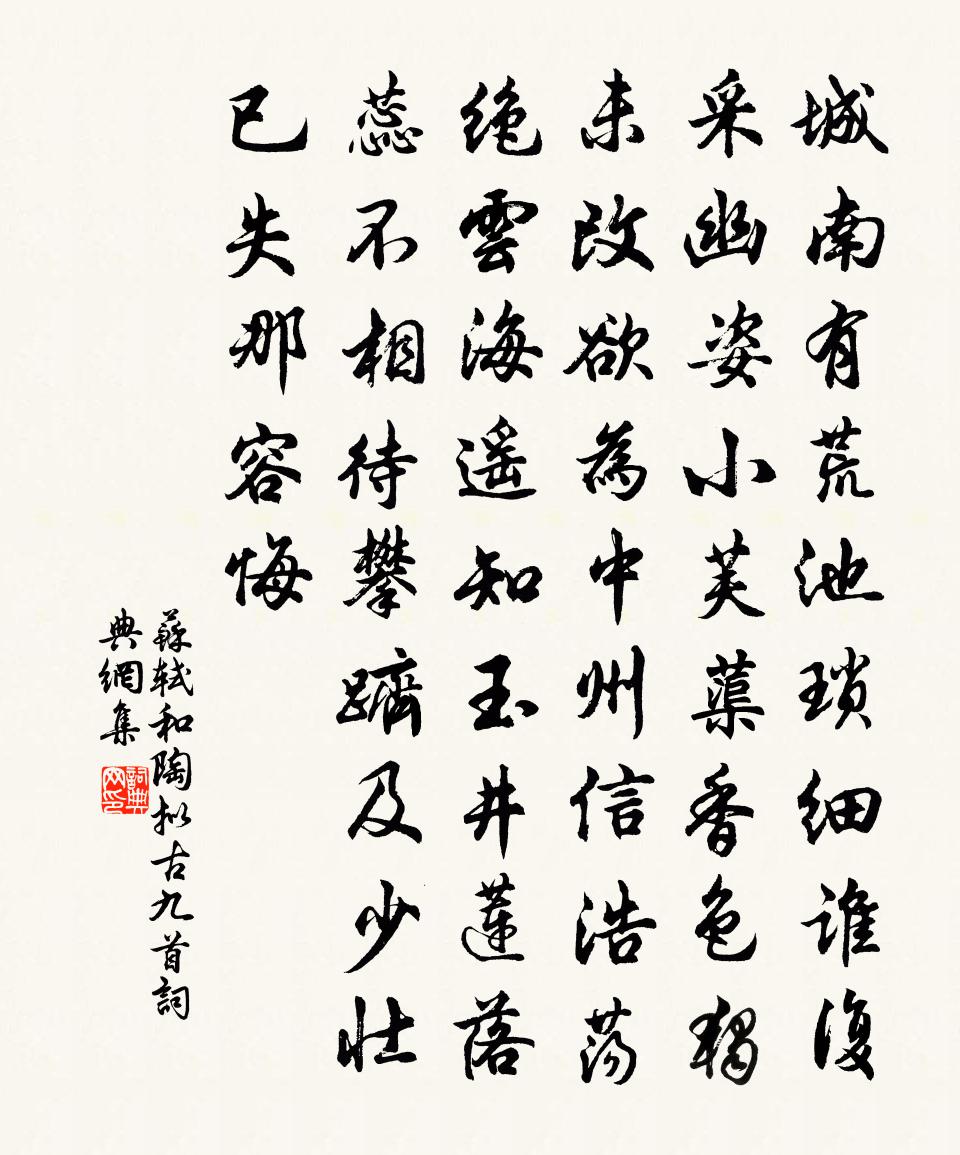 城南有荒池瑣细誰復
采幽姿小芙蕖香色独
未改欲為中州信浩荡
绝雲海遥知玉井蓮落
蕊不相待攀躋及少壮
已失那容悔
蘇轼和陶拟古九首詞
典網集
詞典
网印